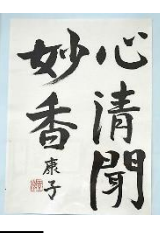 心清聞
妙香
康子